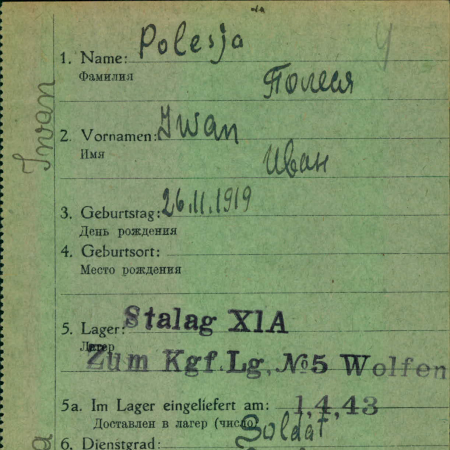 1. Name: Polesja
Фамилия
Полеся
2. Vornamen: Iwan
Имя
Иван
3. Geburtstag: 26.11.1919
День рождения
4. Geburtsort:
Место рождения
5. Lager: Stalag XIA
Лагер
Zum Kgf. Lg, №5 Wolfen
5a. Im Lager eingeliefert am: 1,4,43
Доставлен в лагер (число)
6. Dienstgrad: Soldat
Iwan